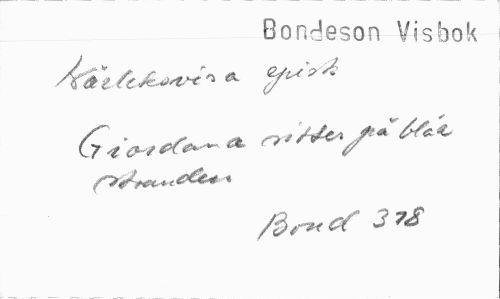 Bondeson Visbok
Kärleksvisa episk
Giordana sitter på blåa
stranden
Bond 378